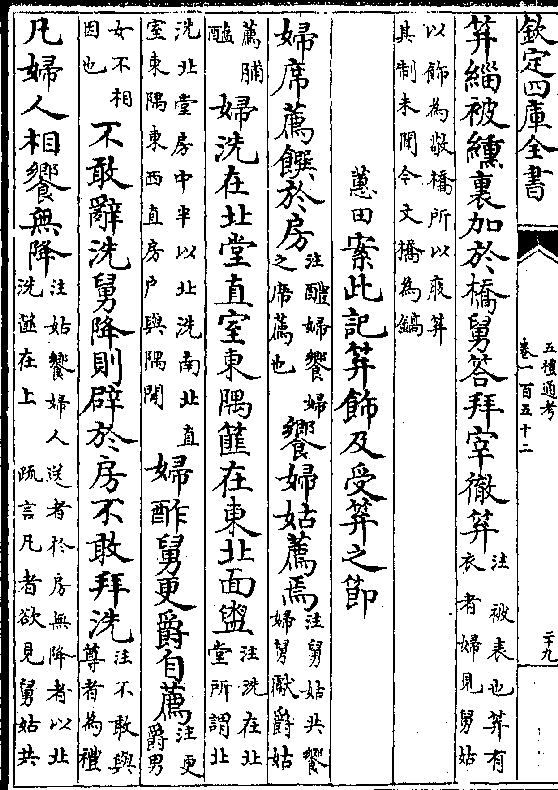 欽定四庫全書
五禮通考
卷一百五十二
二十九
笄緇被纁裏加於橋舅答拜宰徹笄注被表也笄有
衣者婦見舅姑
以飾為敬橋所以庪笄
其制未聞今文橋為鎬
蕙田案此記笄飾及受笄之節
婦席薦饌於房注醴婦饗婦之席薦也饗婦姑薦焉注舅姑共饗婦舅獻爵姑
薦脯醢婦洗在北堂直室東隅篚在東北面盥注洗在北堂所謂北
洗北堂房中半以北洗南北直室東隅東西直房户與隅間婦酢舅更爵自薦注更爵男
女不相因也不敢辭洗舅降則辟於房不敢拜洗注不敢與尊者為禮
凡婦人相饗無降注姑饗婦人送者於房無降者以北洗篚在上疏言凡者欲見舅姑共